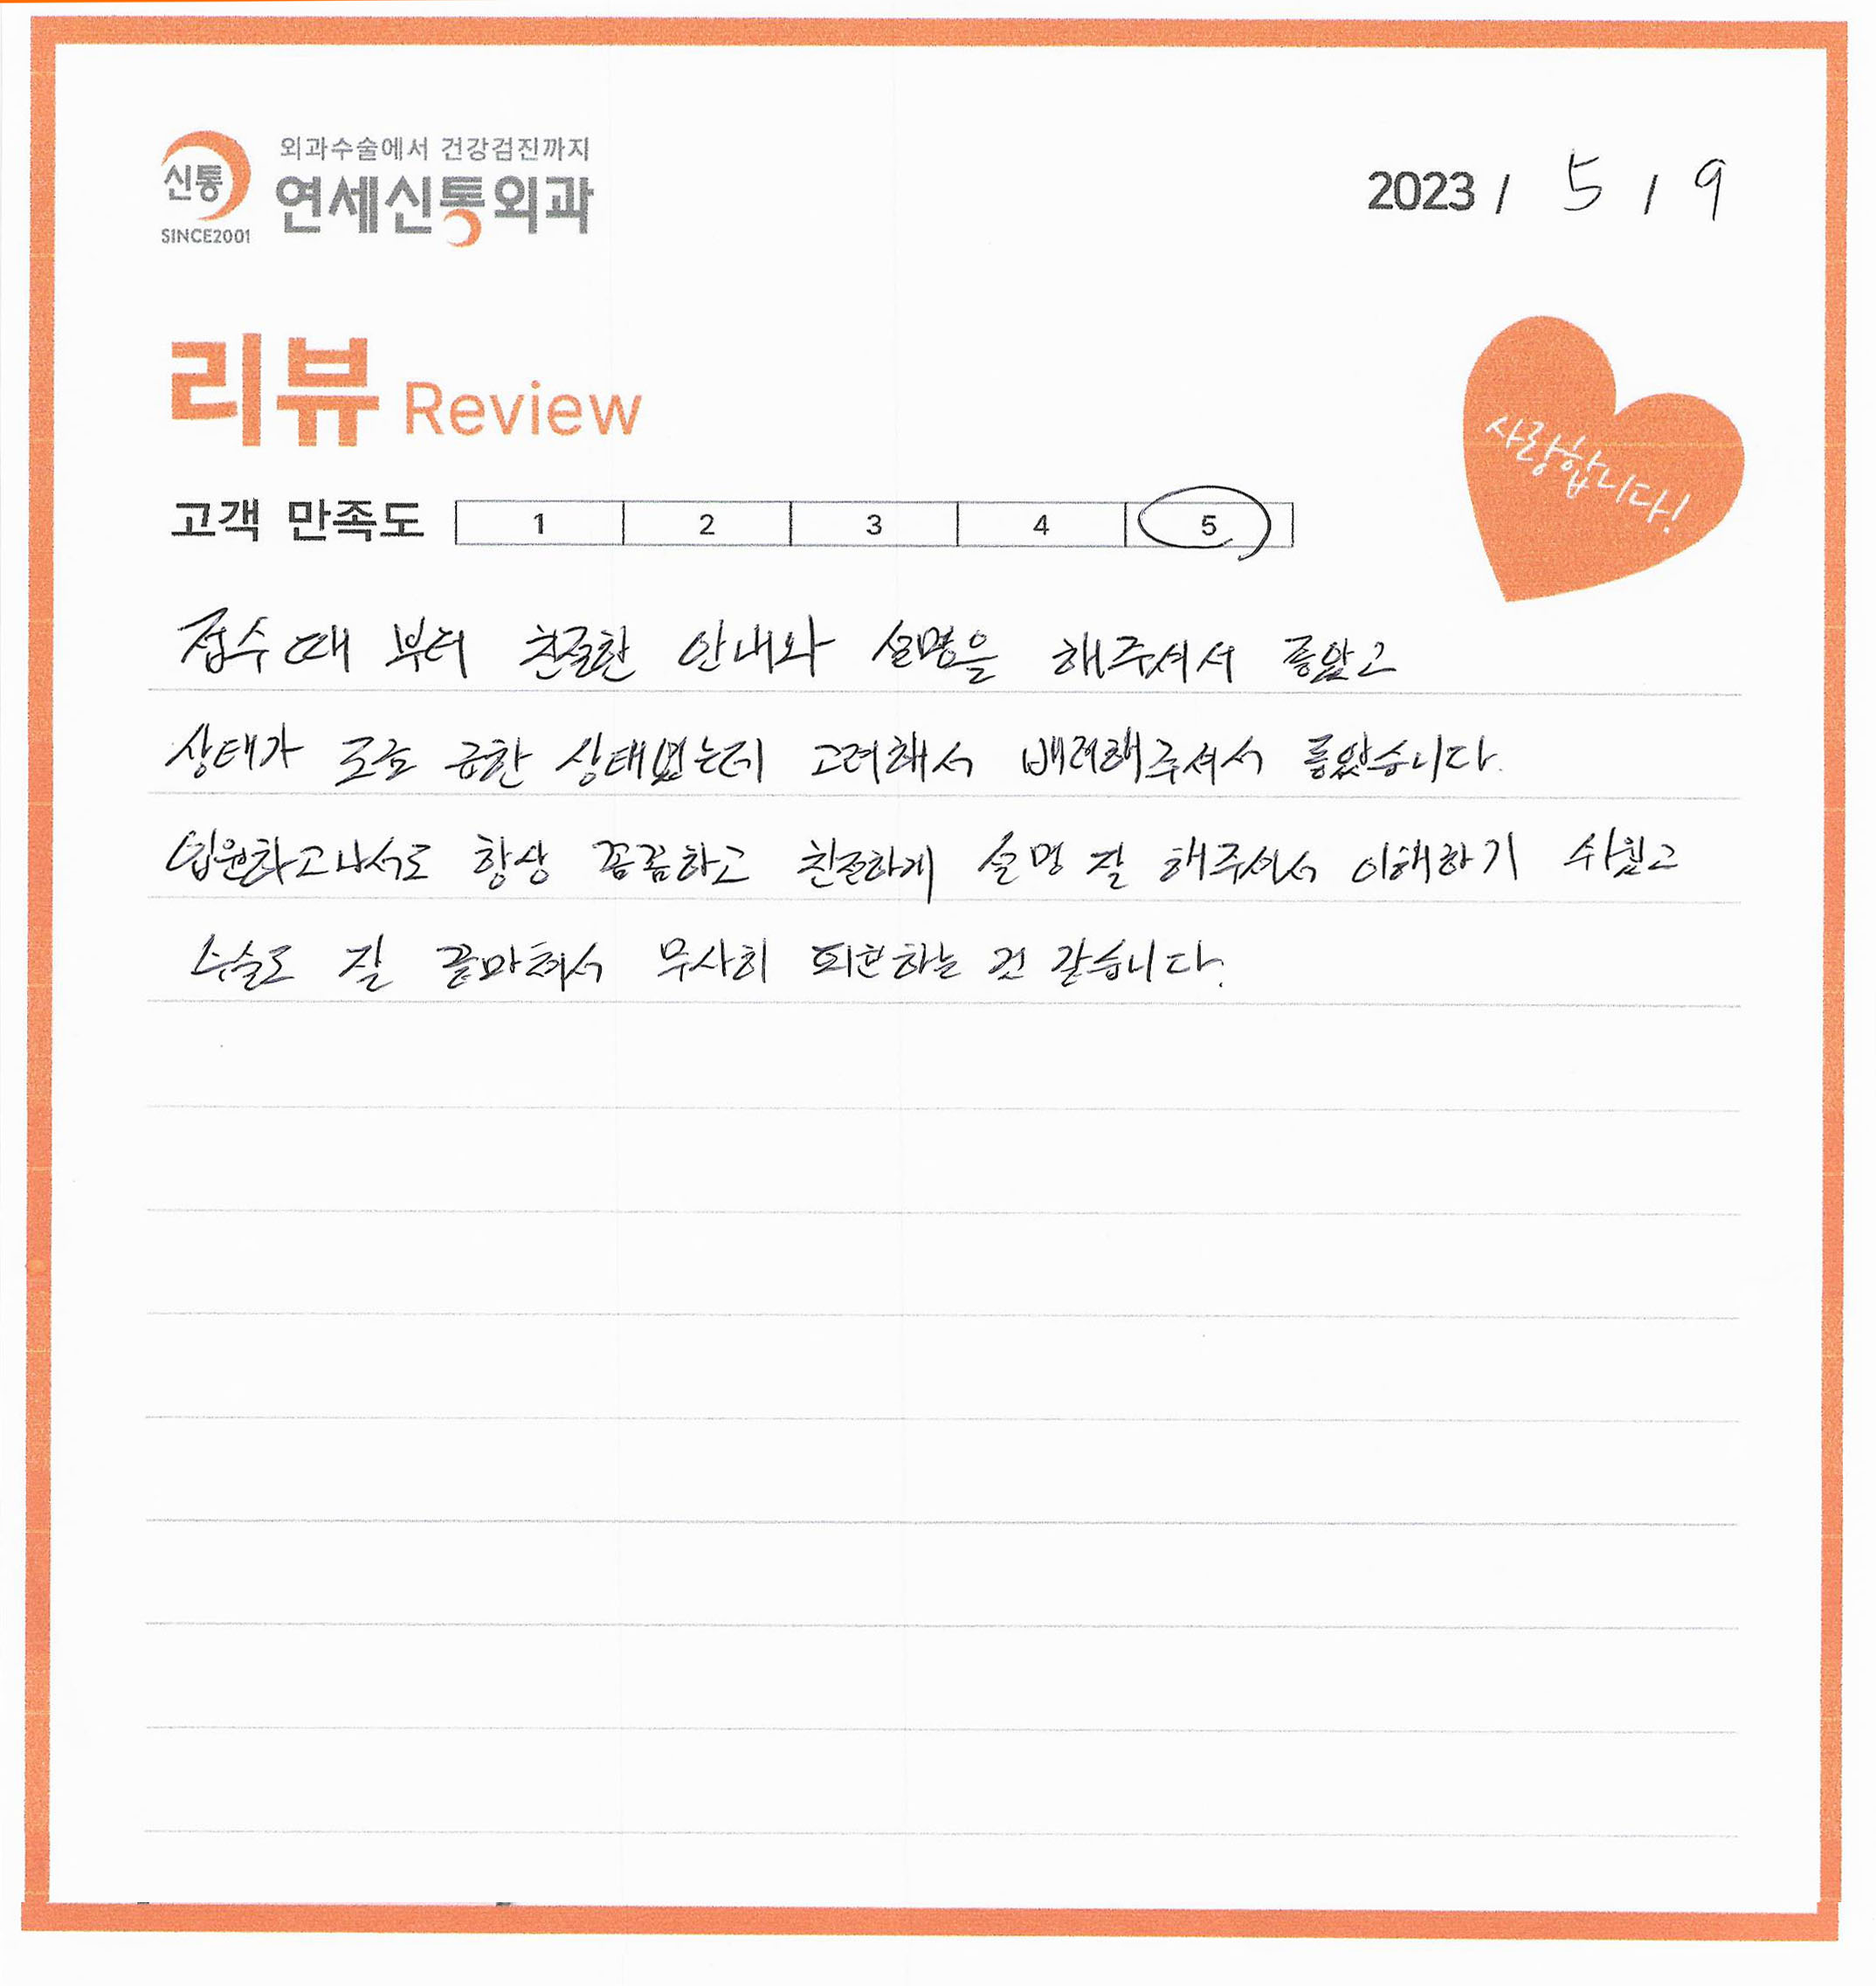 외과수술에서 건강검진까지
신통
연세신통외과
SINCE2001
2023 / 5 / 9
리뷰 Review
사랑합니다!
고객 만족도 1 2 3 4 5
접수때 부터 친절한 안내와 설명을 해주셔서 좋았고
상태가 조금 급한 상태였는데 고려해서 배려해주셔서 좋았습니다.
입원하고나서도 항상 꼼꼼하고 친절하게 설명 잘 해주셔서 이해하기 쉬웠고
수술도 잘 끝마쳐서 무사히 퇴원하는 것 같습니다.